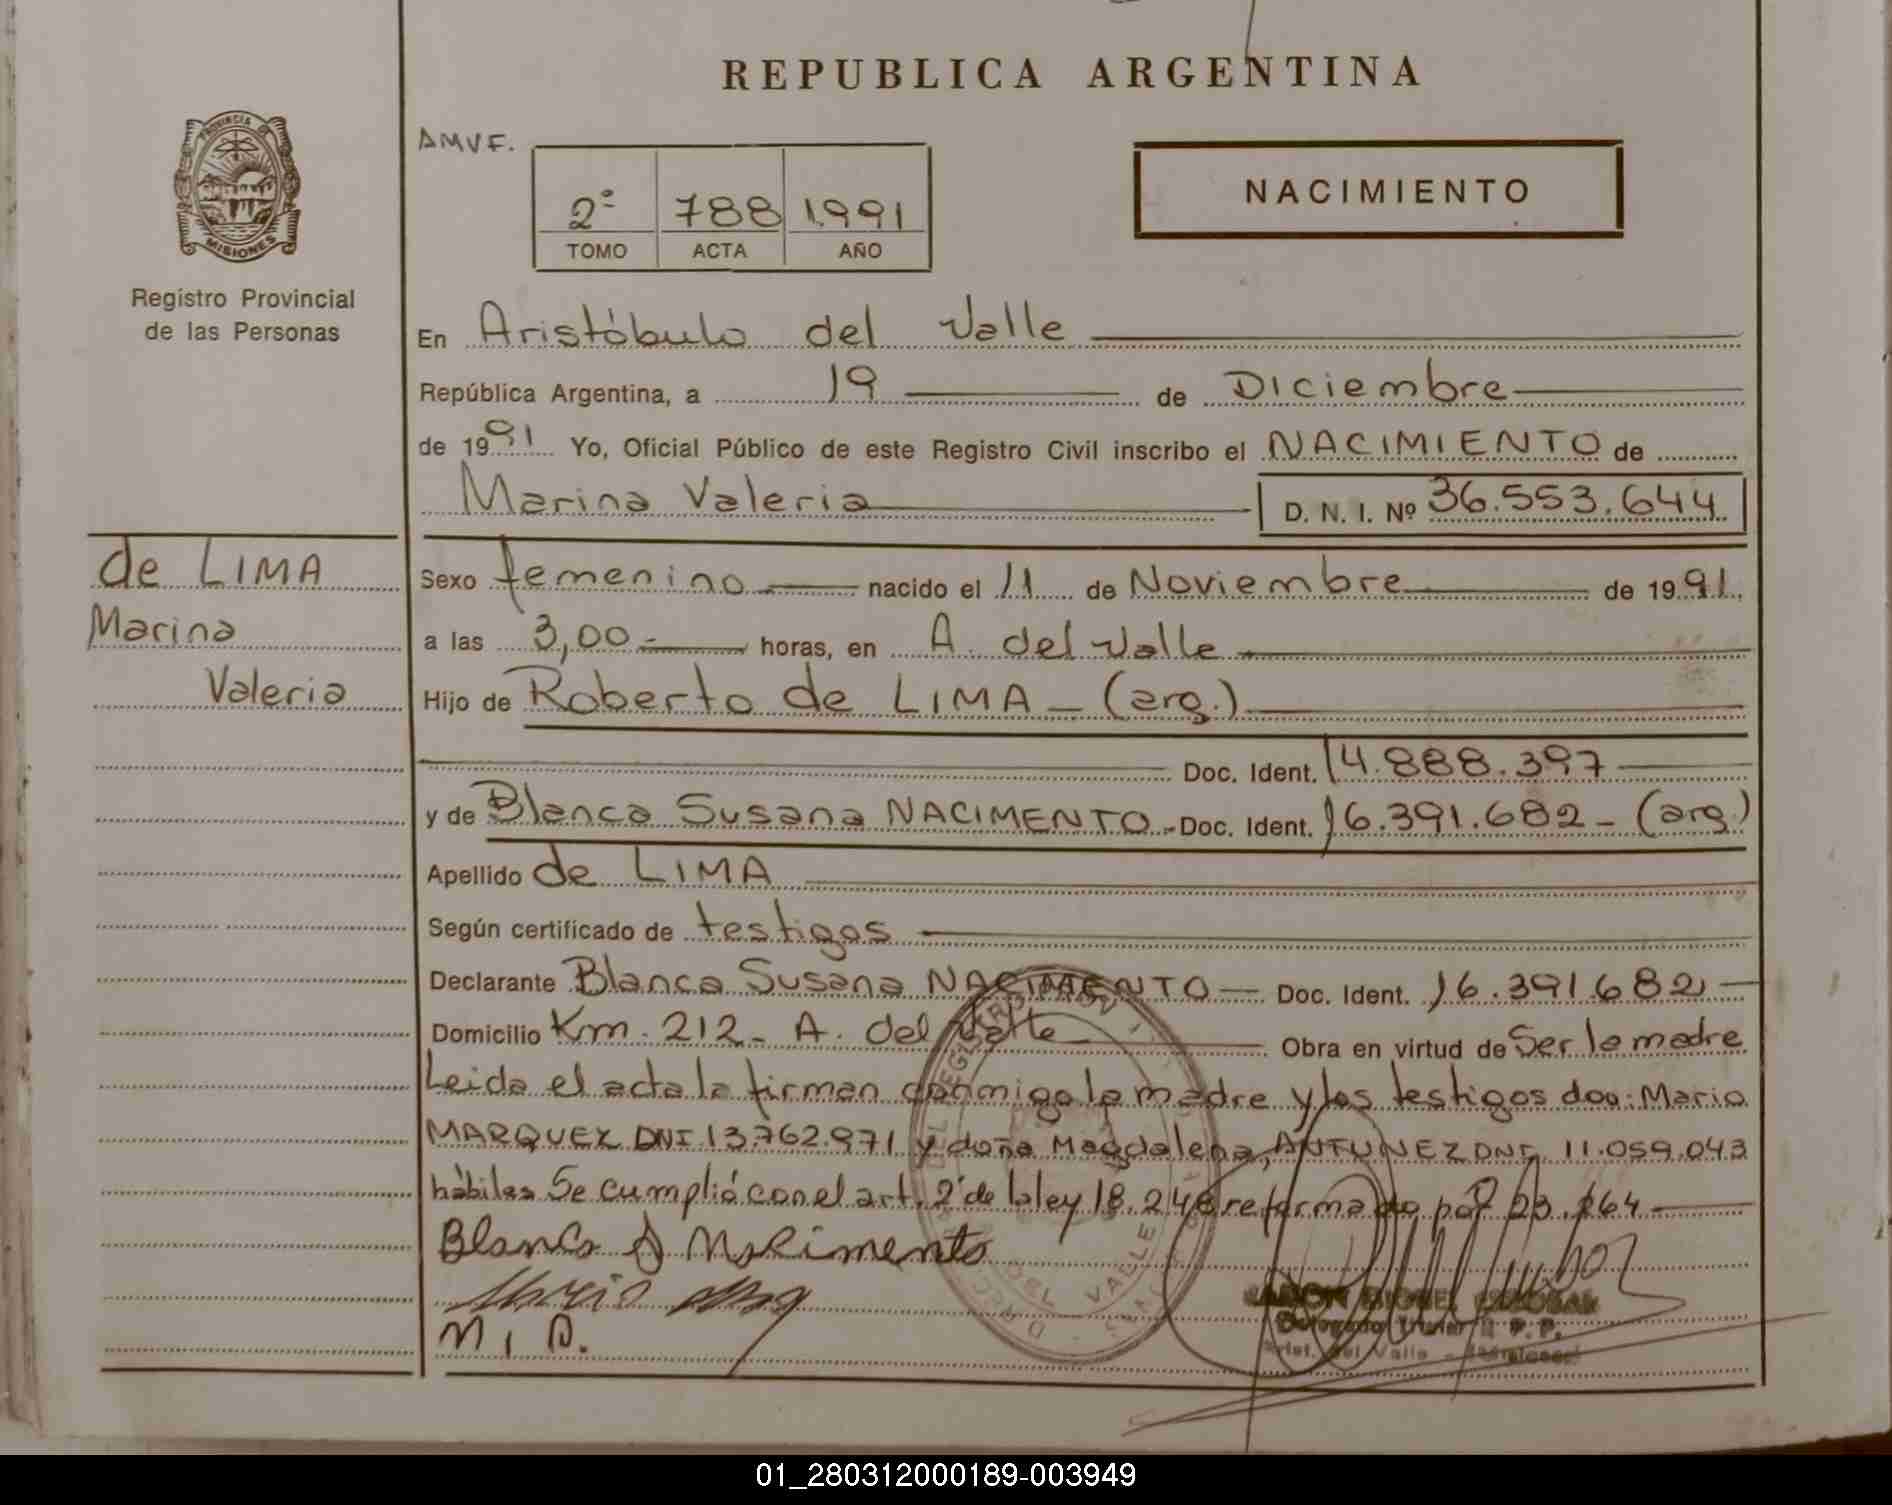 REPUBLICA ARGENTINA
PROVINCIA DE
MISIONES
Registro Provincial
de las Personas
AMVF.
2º 788 1991
TOMO ACTA AÑO
NACIMIENTO
En Aristóbulo del Valle
República Argentina, a 19 de Diciembre
de 1991 Yo, Oficial Público de este Registro Civil inscribo el NACIMIENTO de
Marina Valeria D. N. I. Nº 36.553.644
de LIMA
Marina
Valeria
Sexo femenino nacido el 11 de Noviembre de 1991.
a las 3,00.- horas, en A. del Valle
Hijo de Roberto de LIMA - (arg.)
Doc. Ident. 14.888.397
y de Blanca Susana NACIMENTO.- Doc. Ident. 16.391.682 - (arg.)
Apellido de LIMA
Según certificado de testigos
Declarante Blanca Susana NACIMENTO - Doc. Ident. 16.391.682 -
Domicilio Km. 212 - A. del Valle Obra en virtud de Ser la madre
Leida el acta la firman conmigo la madre y los testigos don: Mario
MARQUEZ DNI.13.762.971 y doña Magdalena, ANTUNEZ DNI. 11.059.043
hábiles Se cumplió con el art. 2º de la ley 18.248 reformado por 23.264
Blanca S Nacimento
Mario
M, A.
DEL VALLE
Delegado Titular R. P. P.
Arist. del Valle - Misiones
01_280312000189-003949